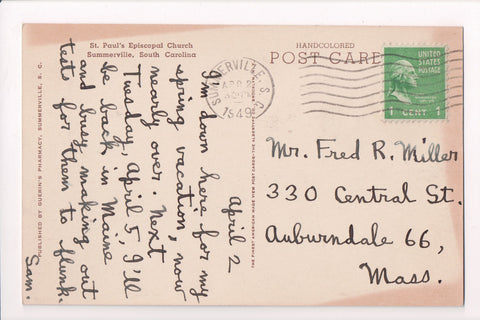 St. Paul's Episcopal Church
Summerville, South Carolina
HANDCOLORED
POST CARD
SUMMERVILLE, S. C.
APR 2
1949
UNITED
STATES
POSTAGE
1 CENT 1
April 2
I'm down here for my
spring vacation, now
nearly over. Next
Tuesday, April 5, I'll
be back in Maine
and busy making out
tests for them to flunk.
Sam.
Mr. Fred R. Miller
330 Central St.
Auburndale 66,
Mass.
PUBLISHED BY GUERIN'S PHARMACY, SUMMERVILLE, S. C.